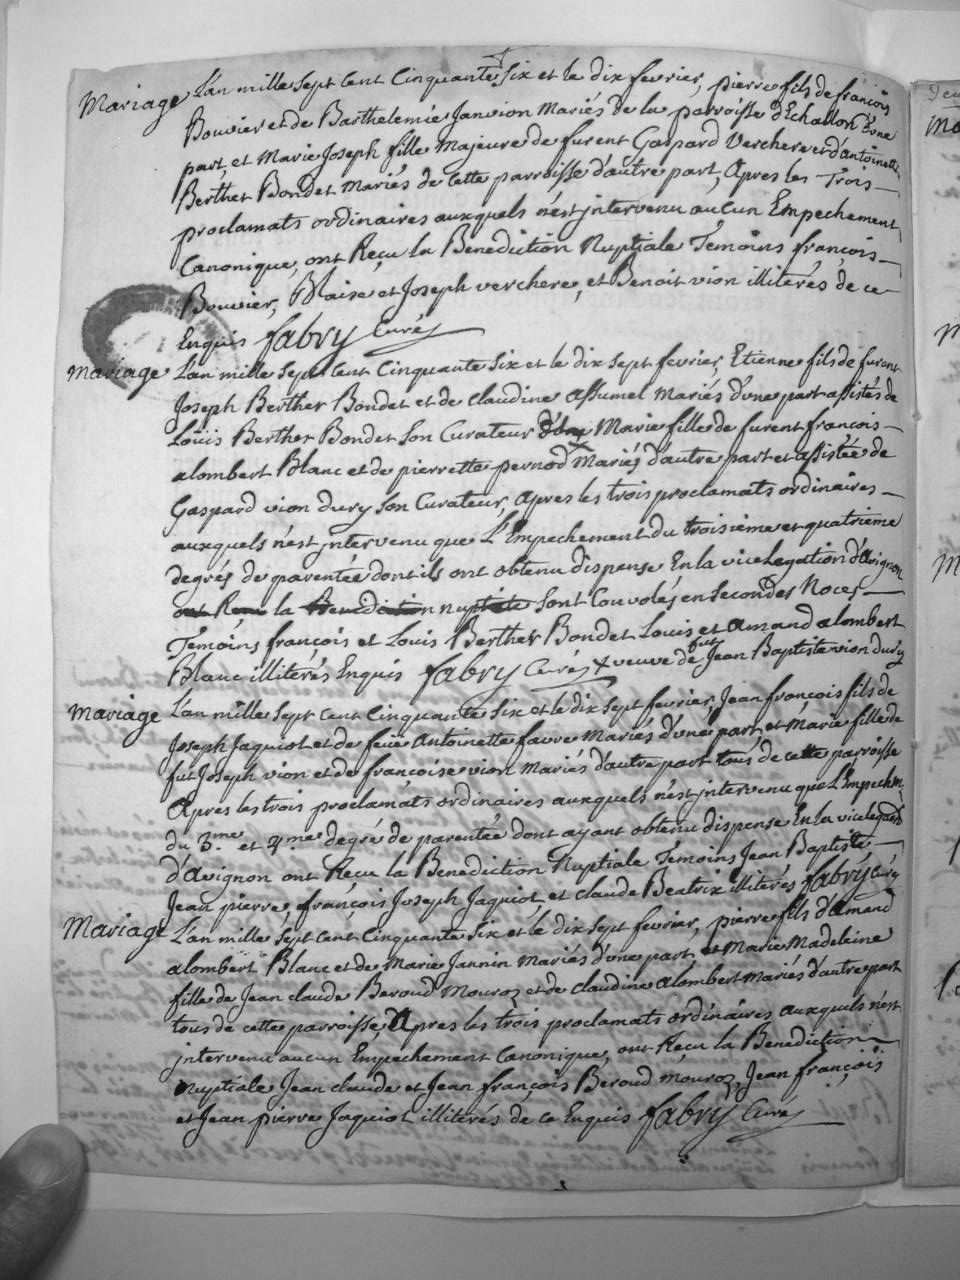 Mariage L'an mille sept cent Cinquante Six et le dix fevrier, pierre fils de françois
Bouvier et de Barthelemie Janvion Mariés de la parroisse d'Echallon d'une
part, et Marie Joseph fille Majeure de furent Gaspard Verchere et d'antoinette
Berthet Bondet Mariés de cette parroisse d'autre part, Apres les Trois
proclamats ordinaires auxquels n'est jntervenu aucun Empechement
Canonique, ont Reçu la Benediction Nuptiale Temoins françois
Bouvier, Blaise et Joseph verchere, et Benoit vion illiterés de ce
Enquis fabry Curé
Mariage L'an mille Sept Cent Cinquante Six et le dix Sept fevrier, Etienne fils de furent
Joseph Berthet Bondet et de claudine assumel Mariés d'une part assistés de
Louis Berthet Bondet Son Curateur Marie fille de furent françois
alombert Blanc et de pierrette pernod Mariés d'autre part et assistée de
Gaspard vion dury Son Curateur, Apres les trois proclamats ordinaires
auxquels n'est jntervenu que L'Empechement du troisieme et quatrieme
degrés de parentée dont ils ont obtenu dispense En la vicelegation d'avignon
ont Reçu la Benediction nuptiale Sont Convolés en Secondes Noces
Temoins françois et Louis Berthet Bondet Louis et amand alombert
Blanc illiterés Enquis fabry Curé x veuve de fut Jean Baptiste vion dury
Mariage L'an mille Sept Cent Cinquante Six et le dix Sept fevrier, Jean françois fils de
Joseph Jaquiot et de feüe Antoinette favre Mariés d'une part, et Marie fille de
fut Joseph vion et de françoise vion Mariés d'autre part tous de cette parroisse
Apres les trois proclamats ordinaires auxquels n'est jntervenu que L'Empechmt
du 3.me et 4.me degré de parentée dont ayant obtenu dispense En la vicelegaõn
d'avignon ont Reçu la Benediction Nuptiale Temoins Jean Baptiste
Jean pierre, françois Joseph Jaquiot, et claude Beatrix illiterés fabry Curé
Mariage L'an mille Sept Cent Cinquante Six et le dix Sept fevrier, pierre fils d'amand
alombert Blanc et de Marie Jannin Mariés d'une part et Marie Madeleine
fille de Jean claude Beroud Mouroz et de claudine alombert Mariés d'autre part
tous de cette parroisse, Apres les trois proclamats ordinaires auxquels n'est
jntervenu aucun Empechement Canonique, ont Reçu la Benediction
Nuptiale Jean claude et Jean françois Beroud mouroz, Jean françois
et Jean pierre Jaquiot illiterés de ce Enquis fabry Curé